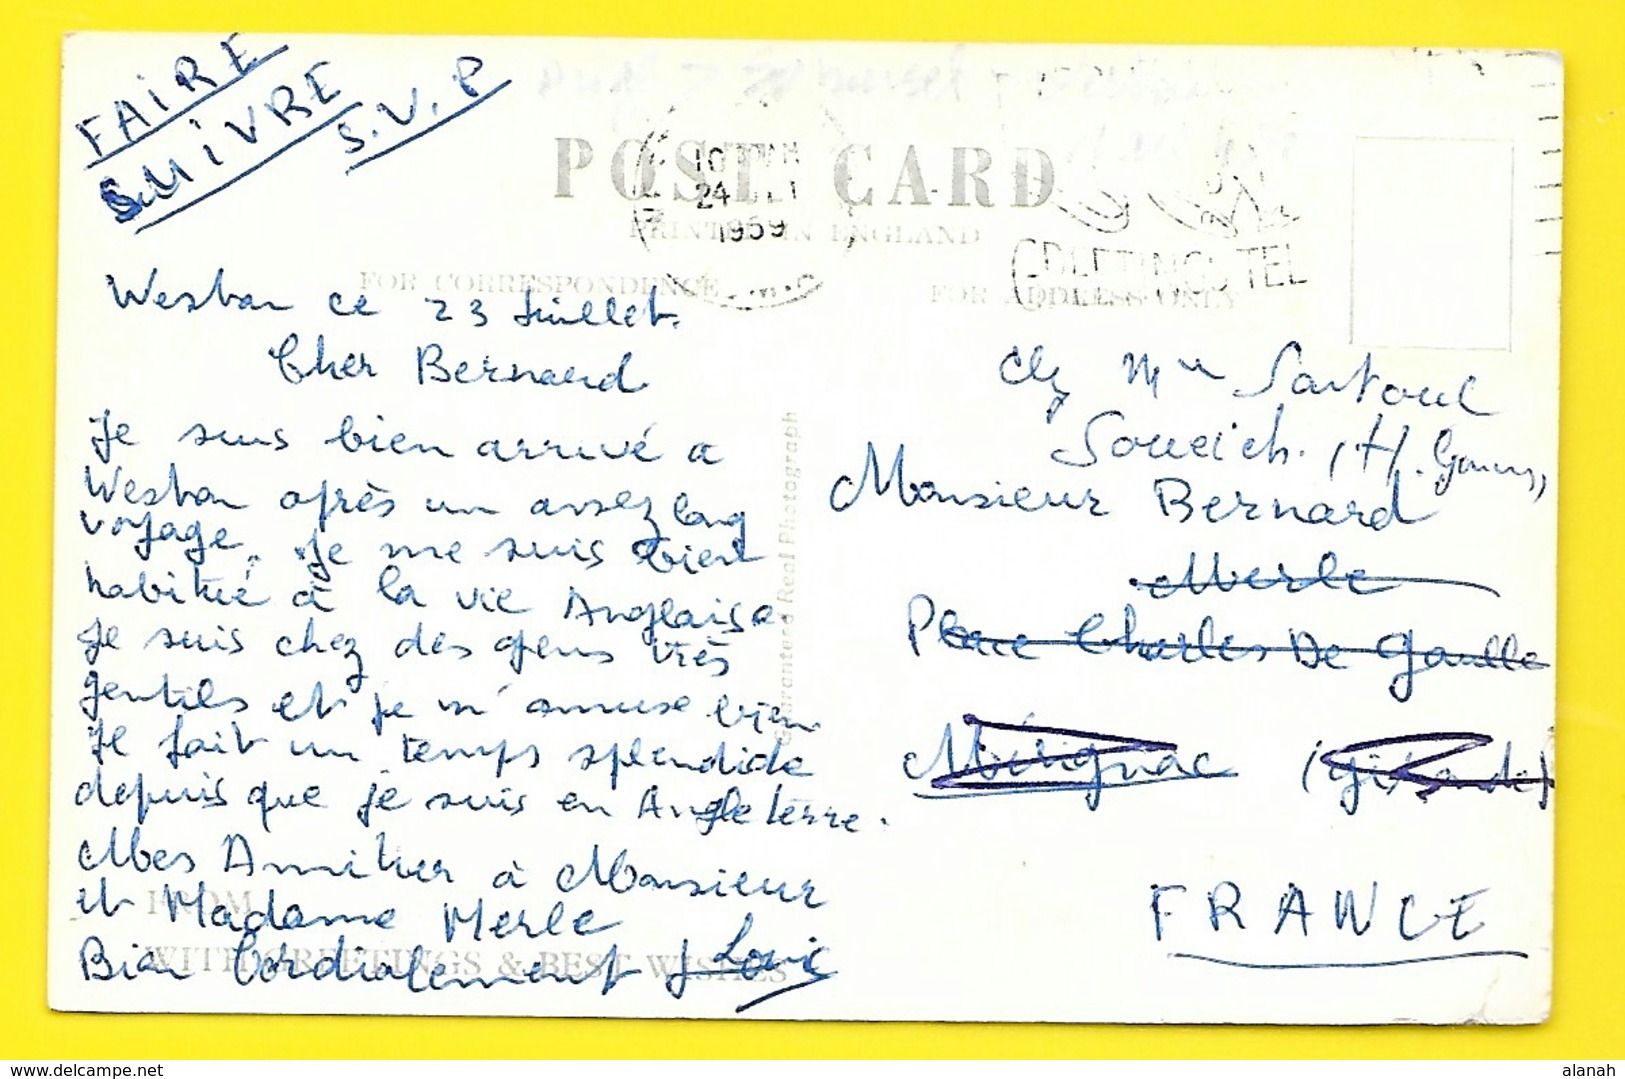 FAIRE
SUIVRE
S.V.P
POST CARD
PRINTED IN ENGLAND
FOR CORRESPONDENCE
FOR ADDRESS ONLY
10
24
1959
GREETINGS TEL
Weston ce 23 Juillet.
Cher Bernard
Je suis bien arrivé a
Weston après un assez long
voyage. Je me suis bien
habitué à la vie Anglaise
Je suis chez des gens très
gentils et je m'amuse bien
Il fait un temps splendide
depuis que je suis en Angleterre.
Mes Amitiés à Monsieur
et Madame Merle
Bien Cordialement
Louis
FROM
WITH GREETINGS & BEST WISHES
Guaranteed Real Photograph
Chez Mme Sartoul
Soueich. (H. Garonne)
Monsieur Bernard
Merle
Place Charles De Gaulle
Mérignac (Gironde)
FRANCE
www.delcampe.net
alanah